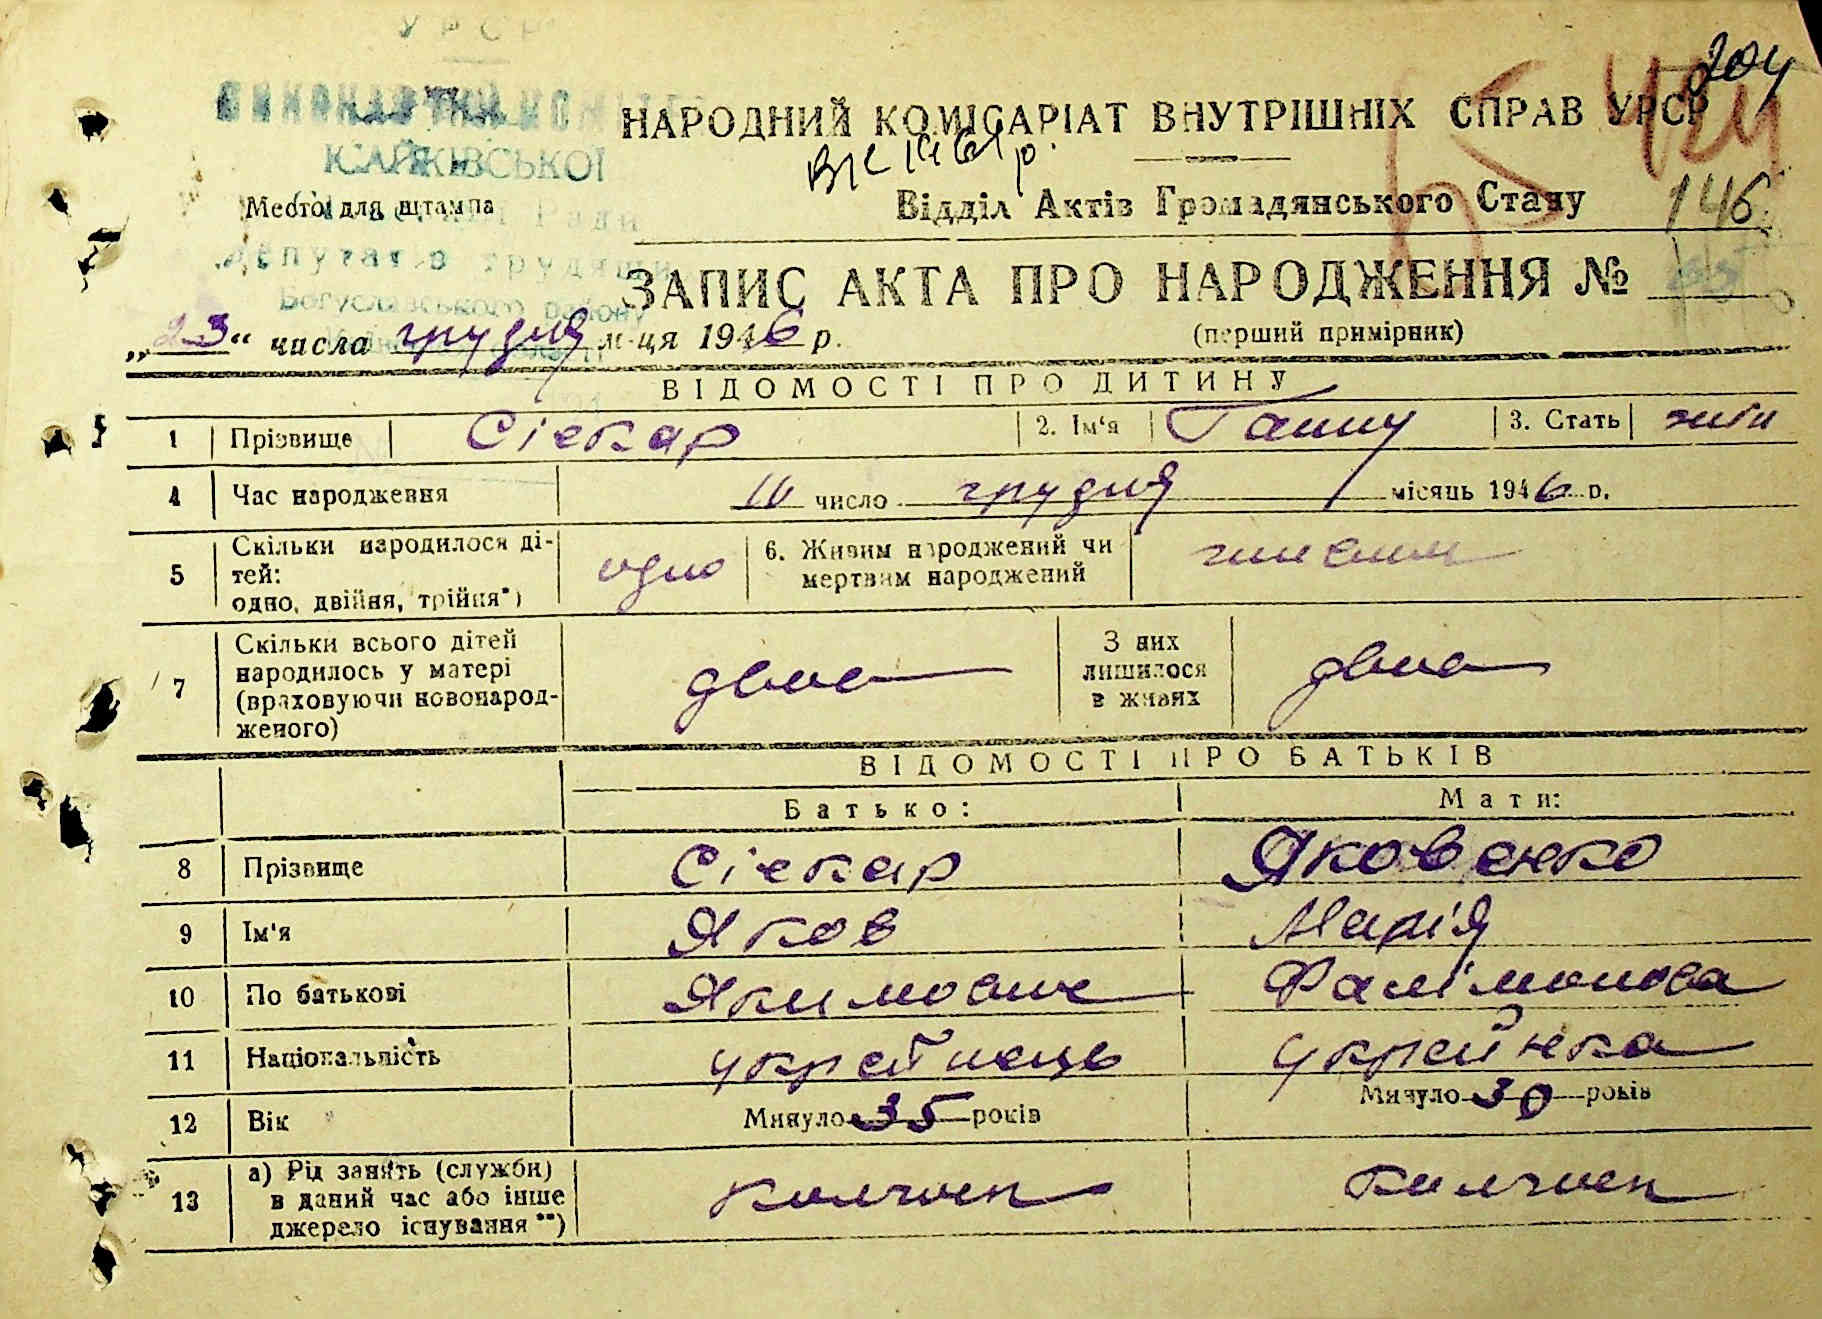 УРСР
204
НАРОДНИЙ КОМІСАРІАТ ВНУТРІШНІХ СПРАВ УРСР
Місто для штампа
Відділ Актів Громадянського Стану
146
Ради
депутатів трудящих
Богуславського району
ЗАПИС АКТА ПРО НАРОДЖЕННЯ №
„23“ числа грудня м-ця 1946 р.
(перший примірник)
ВІДОМОСТІ ПРО ДИТИНУ
1 Прізвище Сіекар 2. Ім'я Ганну 3. Стать жін
4 Час народження число грудня місяць 1946 р.
5 Скільки народилося ді-
тей:
одно, двійня, трійня*)
одно
6. Живим народжений чи
мертвим народжений
живим
7 Скільки всього дітей
народилось у матері
(враховуючи новонарод-
женого)
двоє
З них
лишилося
в живих
двоє
ВІДОМОСТІ ПРО БАТЬКІВ
Батько: Мати:
8 Прізвище Сіекар Яковенко
9 Ім'я Яков Марія
10 По батькові Якимович Фалімонова
11 Національність українець українка
12 Вік Минуло 35 років Минуло 30 років
13 а) Рід занять (служби)
в даний час або інше
джерело існування **)
колгосп колгосп